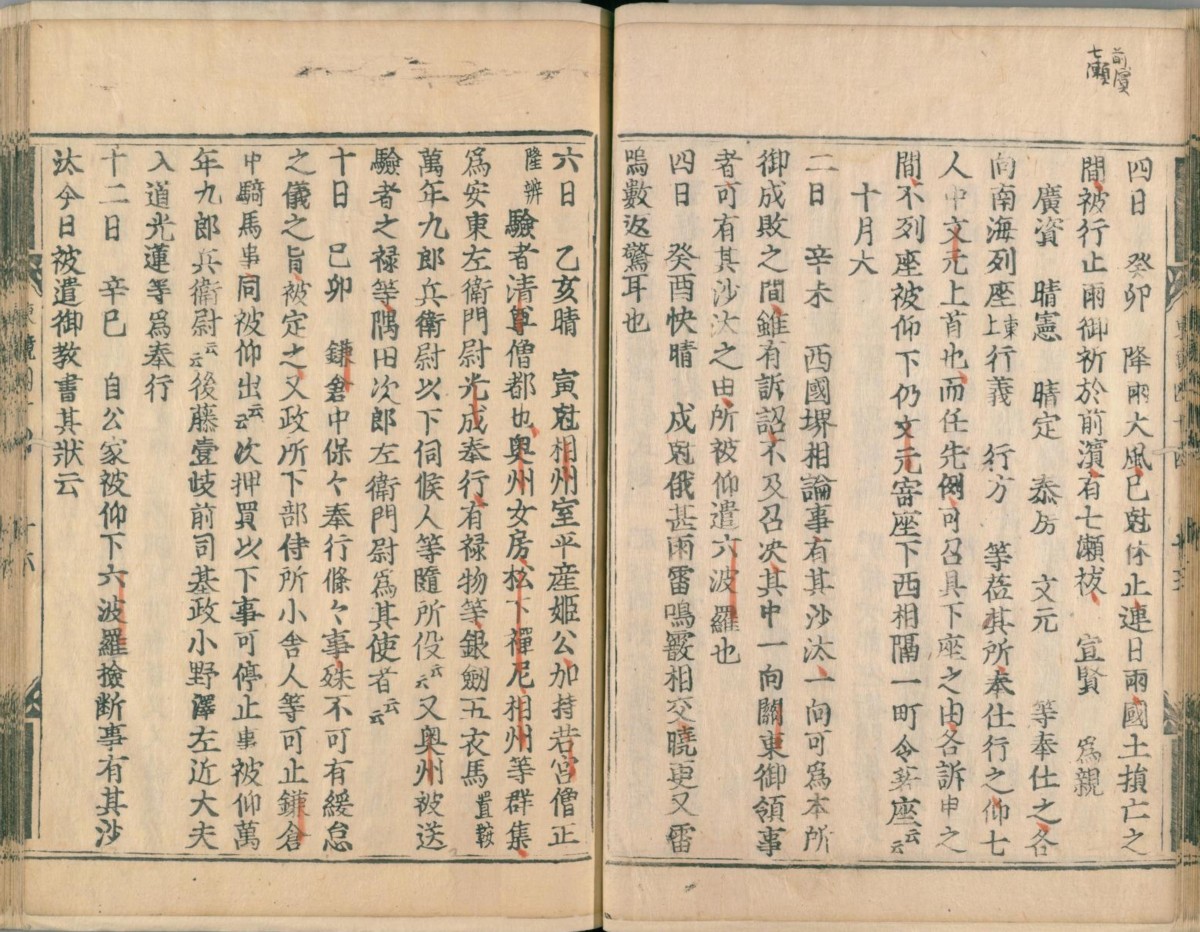 前濱
七瀬
四日　癸卯　降雨大風已尅休止連日雨國土損亡之
間被行止雨御祈於前濱有七瀬祓　宣賢　爲親
廣資　晴憲　晴定　泰房　文元　等奉仕之各
向南海列座上東行義　行方　等莅其所奉仕行之仰七
人中文元上首也而任先例可召具下座之由各訴申之
間不列座被仰下仍文元寄座下西相隔一町令著座云云
十月大
二日　辛未　西國堺相論事有其沙汰一向可爲本所
御成敗之間雖有訴詔不及召决其中一向關東御領事
者可有其沙汰之由所被仰遣六波羅也
四日　癸酉快晴　戍尅俄甚雨雷鳴霰相交曉更又雷
鳴數返驚耳也
六日　乙亥晴　寅尅相州室平産姫公加持若宮僧正
隆辨　驗者清尊僧都也奥州女房松下禪尼相州等群集
爲安東左衛門尉光成奉行有禄物等銀劔五衣馬置鞍
萬年九郎兵衛尉以下伺候人等隨所役云云又奥州被送
驗者之禄等隅田次郎左衛門尉爲其使者云云
十日　己卯　鎌倉中保々奉行條々事殊不可有緩怠
之儀之旨被定之又政所下部侍所小舎人等可止鎌倉
中騎馬事同被仰出云云次押買以下事可停止事被仰萬
年九郎兵衛尉云云後藤壹岐前司基政小野澤左近大夫
入道光蓮等爲奉行
十二日　辛巳　自公家被仰下六波羅撿断事有其沙
汰今日被遣御教書其狀云